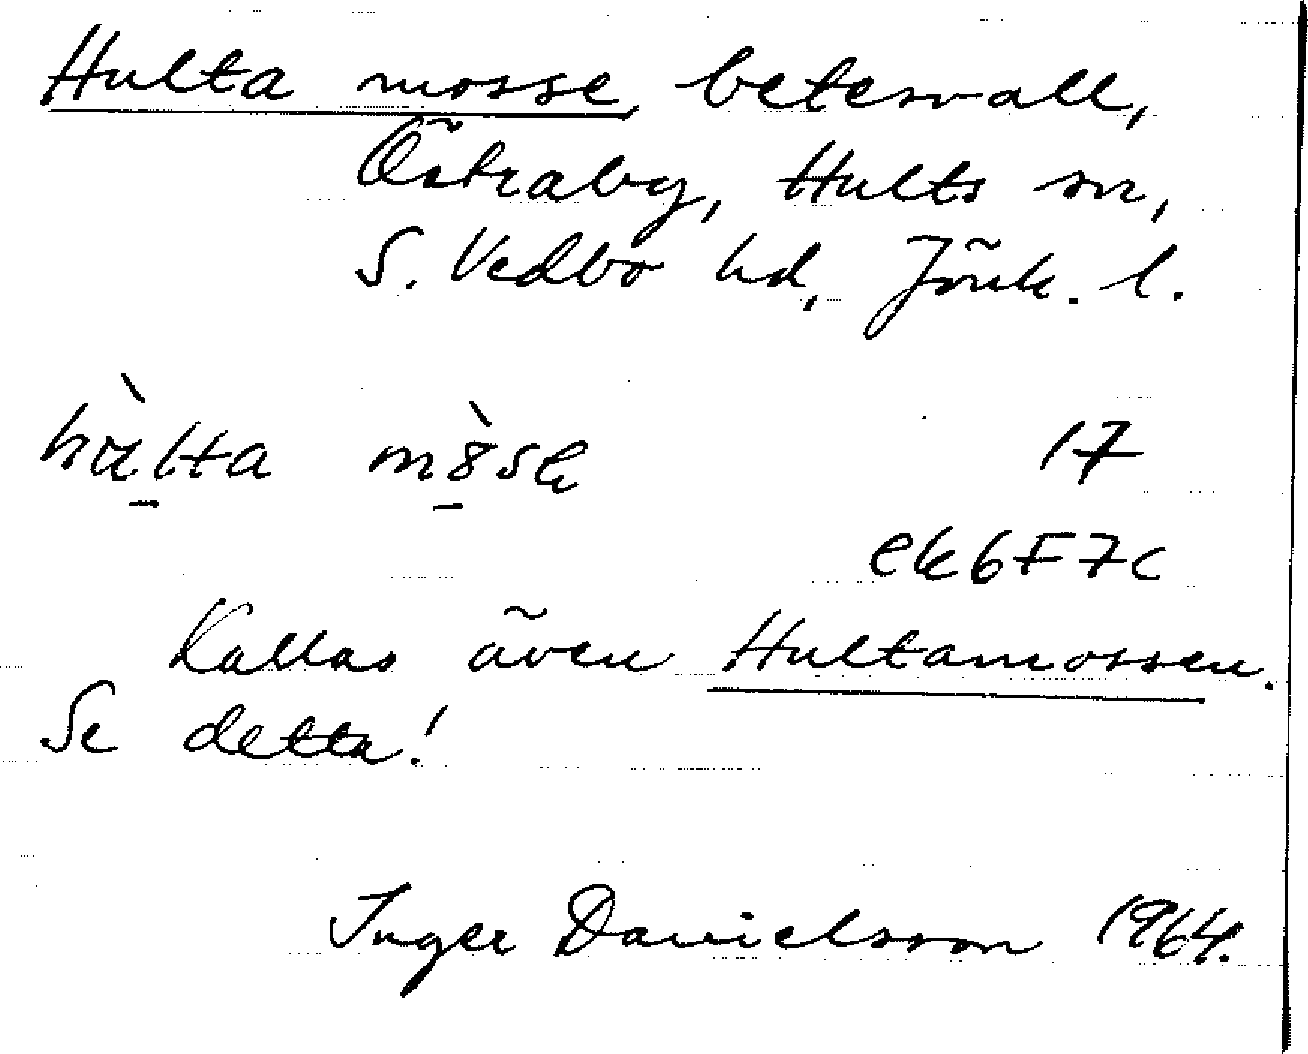 Hulta mosse, betesvall,
Östraby, Hults sn,
S. Vedbo hd, Jönk. l.
17
ek6F7c
Kallas även Hultamossen.
Se detta!
Inger Danielsson 1964.